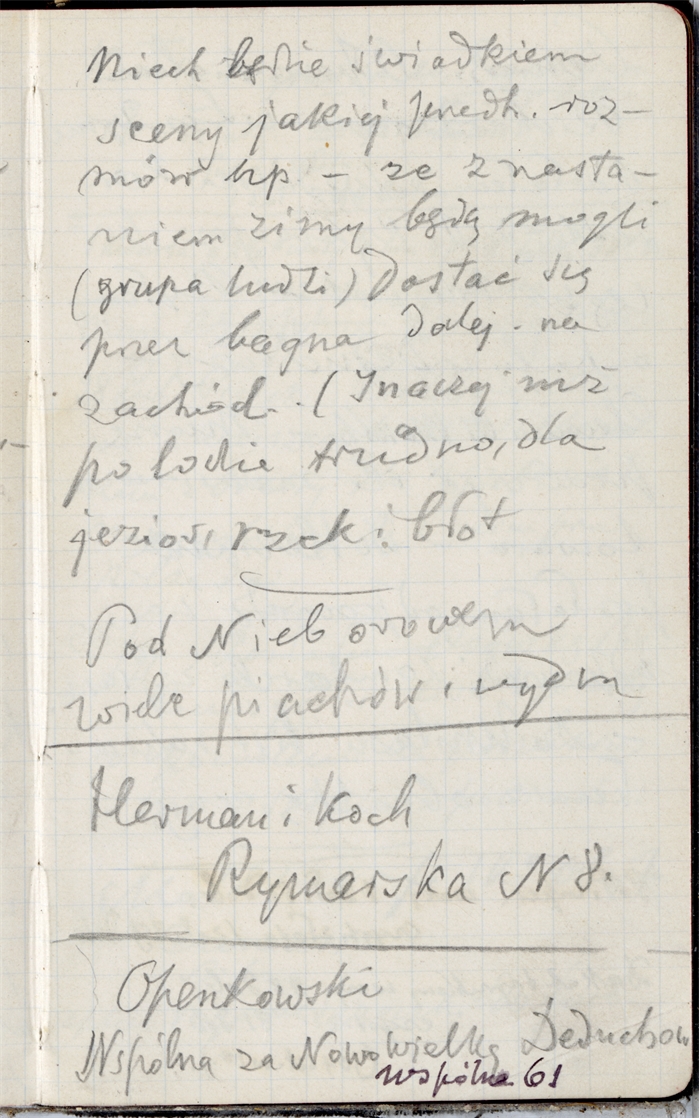 Niech będzie świadkiem
sceny jakiej przedh. roz-
mów np - że z nasta-
niem zimy będą mogli
(grupa ludzi) dostać się
przez bagna dalej. na
zachód. (Inaczej niż
po lodzie trudno, dla
jezior, rzek i błot
Pod Nieborowem
wiele piachów i wydm
Herman i Koch
Rymarska N 8.
Openkowski
Wspólna za Nowowielką Deduchow
wspólna 61